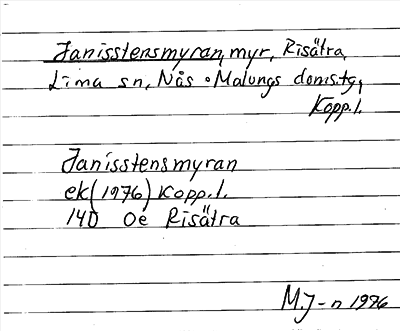 Janisstensmyran, myr, Risätra,
Lima sn, Nås o Malungs doms.tg,
Kopp.l.
Janisstensmyran
ek (1976) Kopp.l.
14D 0e Risätra
MJ-n 1976